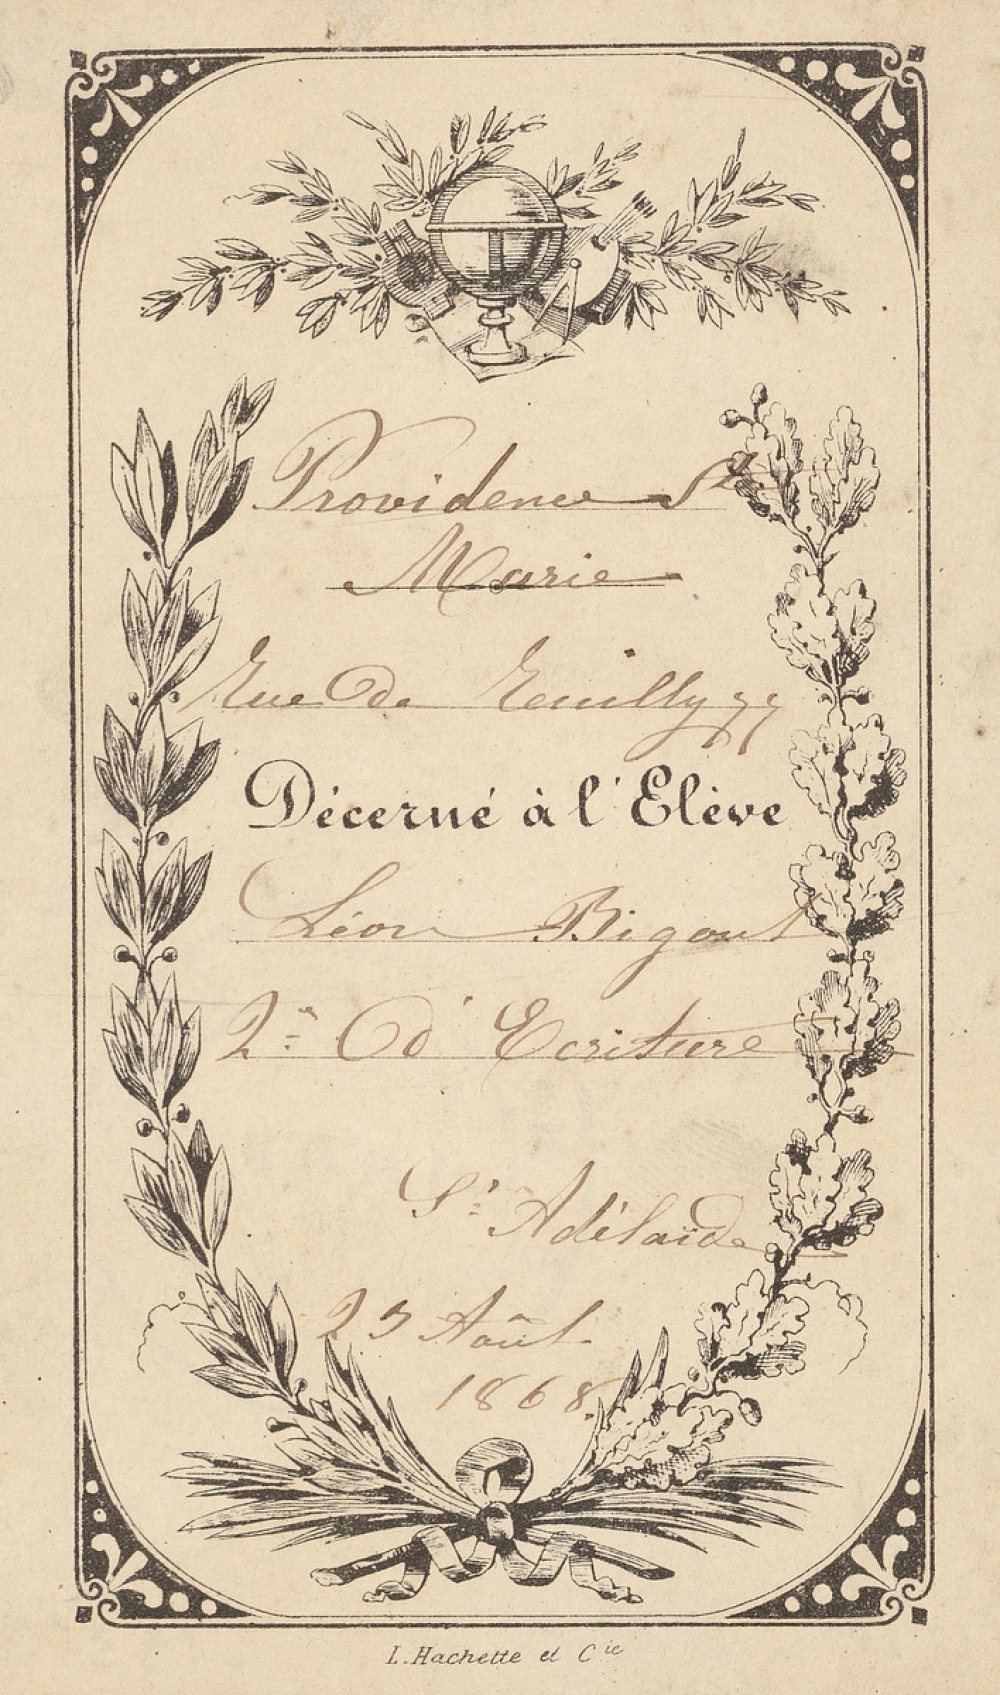 Providence Ste
Marie
Rue de Reuilly 77
Décerné à l'Elève
Léon Bigout
2e d'Ecriture
Sr Adélaïde
23 Août
1868.
L. Hachette et Cie